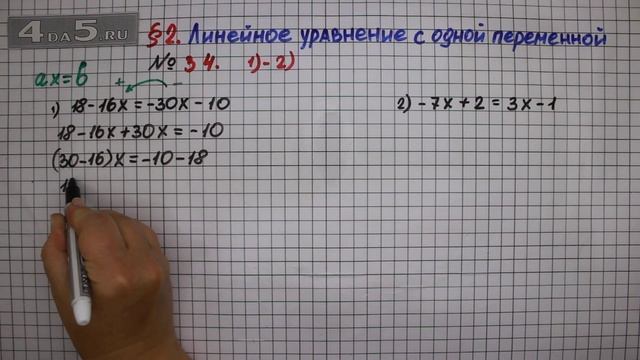 4DA5.RU
§2. Линейное уравнение с одной переменной
№ 34. 1)-2)
ax=b + -
1) 18-16x=-30x-10
18-16x+30x=-10
(30-16)x=-10-18
1
2) -7x+2=3x-1